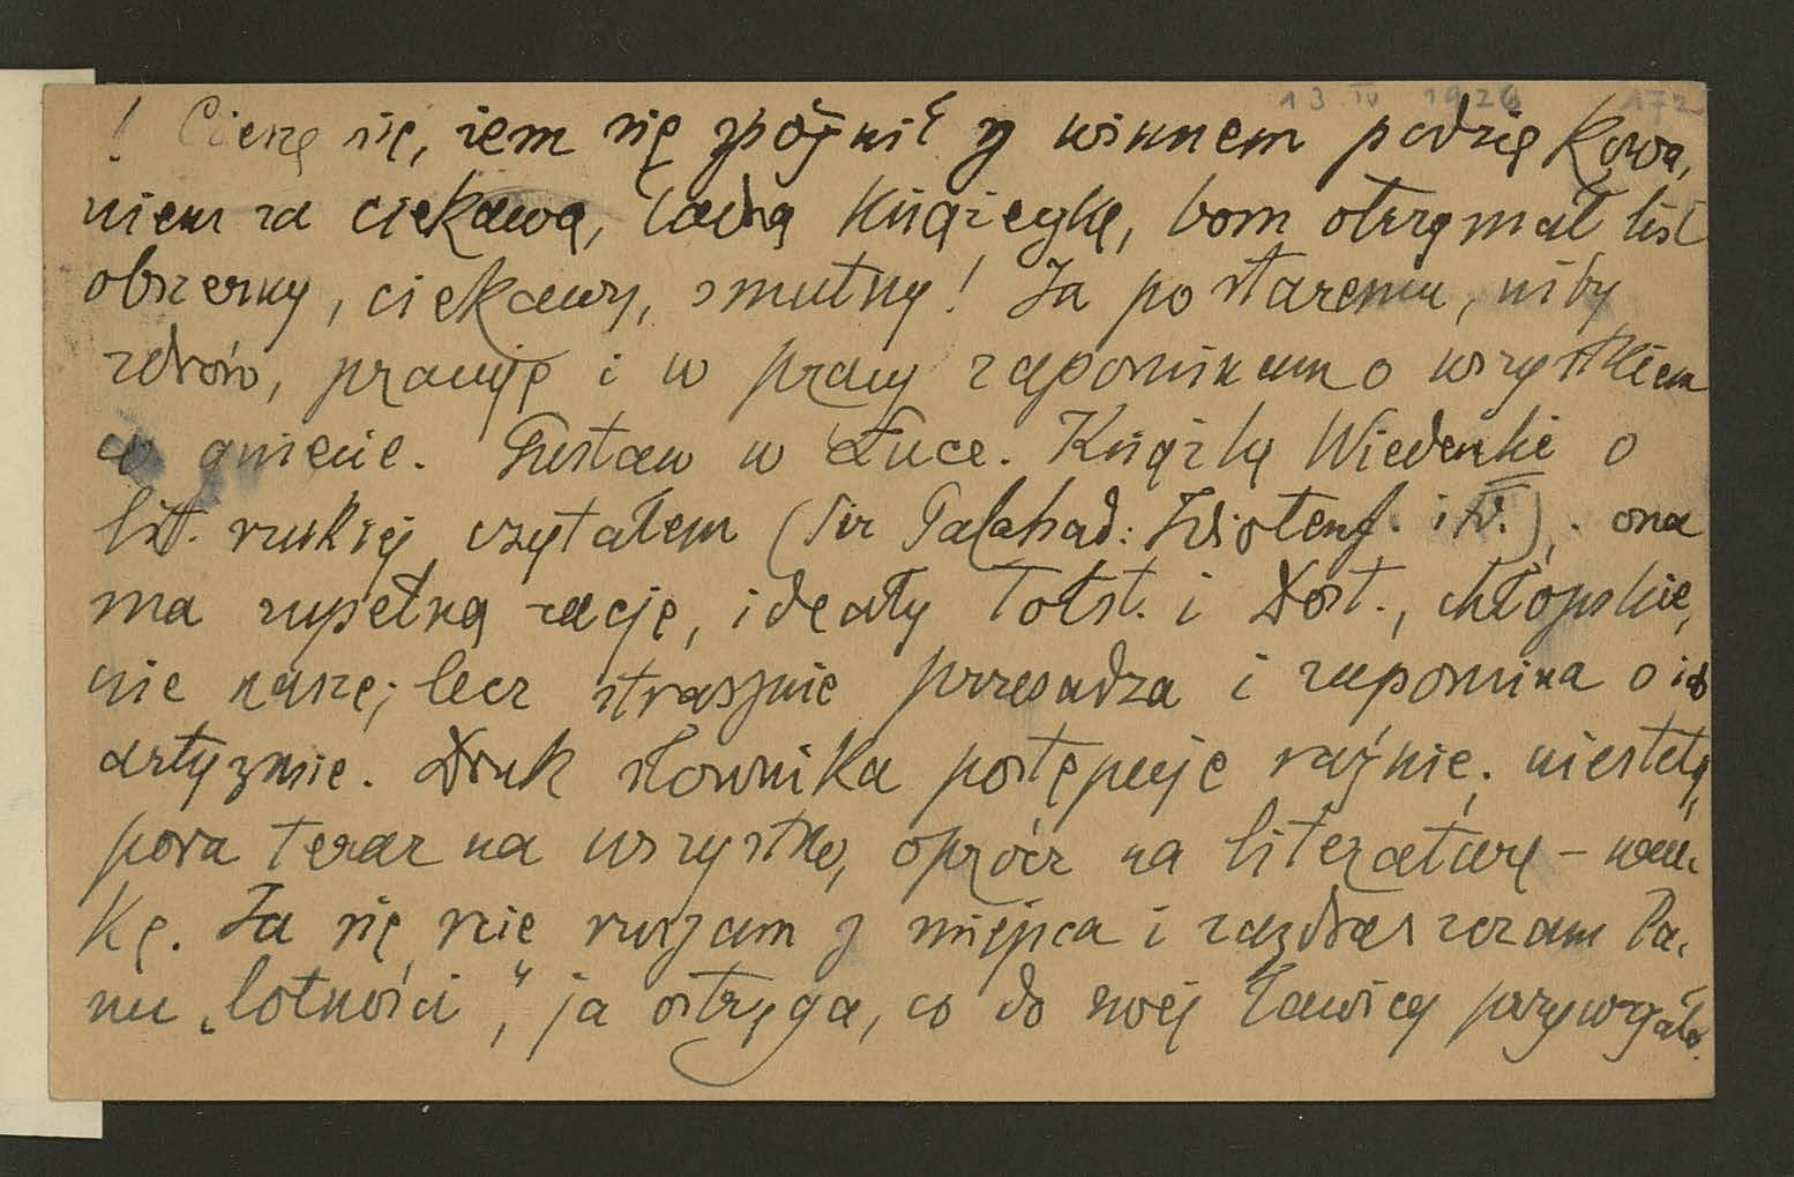 13 IV 1926 172
! Cieszę się, żem się spóźnił z winnem podziękowa,
niem za ciekawą, ładną książeczkę, bom otrzymał list
obszerny, ciekawy, smutny! Ja po staremu, niby
zdrów, pracuję i w pracy zapominam o wszystkiem
co gniecie. Gustaw w Łuce. Książkę Wiedenki o
lit. ruskiej czytałem (Sir Galahad: Idiotenf. itd.), ona
ma zupełną rację, ideały Tołst. i Dost., chłopskie,
nie nasze; lecz strasznie przesadza i zapomina o ich
artyzmie. Druk słownika postępuje raźnie; niestety,
pora teraz na wszystko, oprócz na literaturę – nau,
kę. Ja się nie ruszam z miejsca i zazdraszczam Pa,
nu „lotności", ja ostryga, co do swej ławicy przywarła.